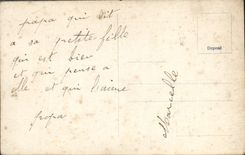 papa qui dit
a sa petite fille
qui est bien
et qui pense a
elle et qui l'aime
papa
Marcelle
Deposé